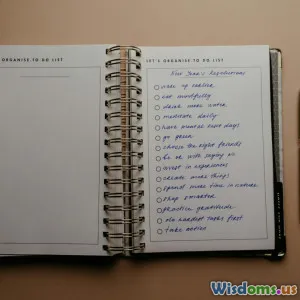 ORGANISE TO DO LIST
LET'S ORGANISE TO DO LIST
New Year's Resolutions
wake up earlier
eat mindfully
drink more water
meditate daily
have mental rest days
go green
choose the right friends
be ok with saying no
invest in experiences
create more things
spend more time in nature
shop smarter
practice gratitude
do hardest tasks first
take action
Wisdoms.us